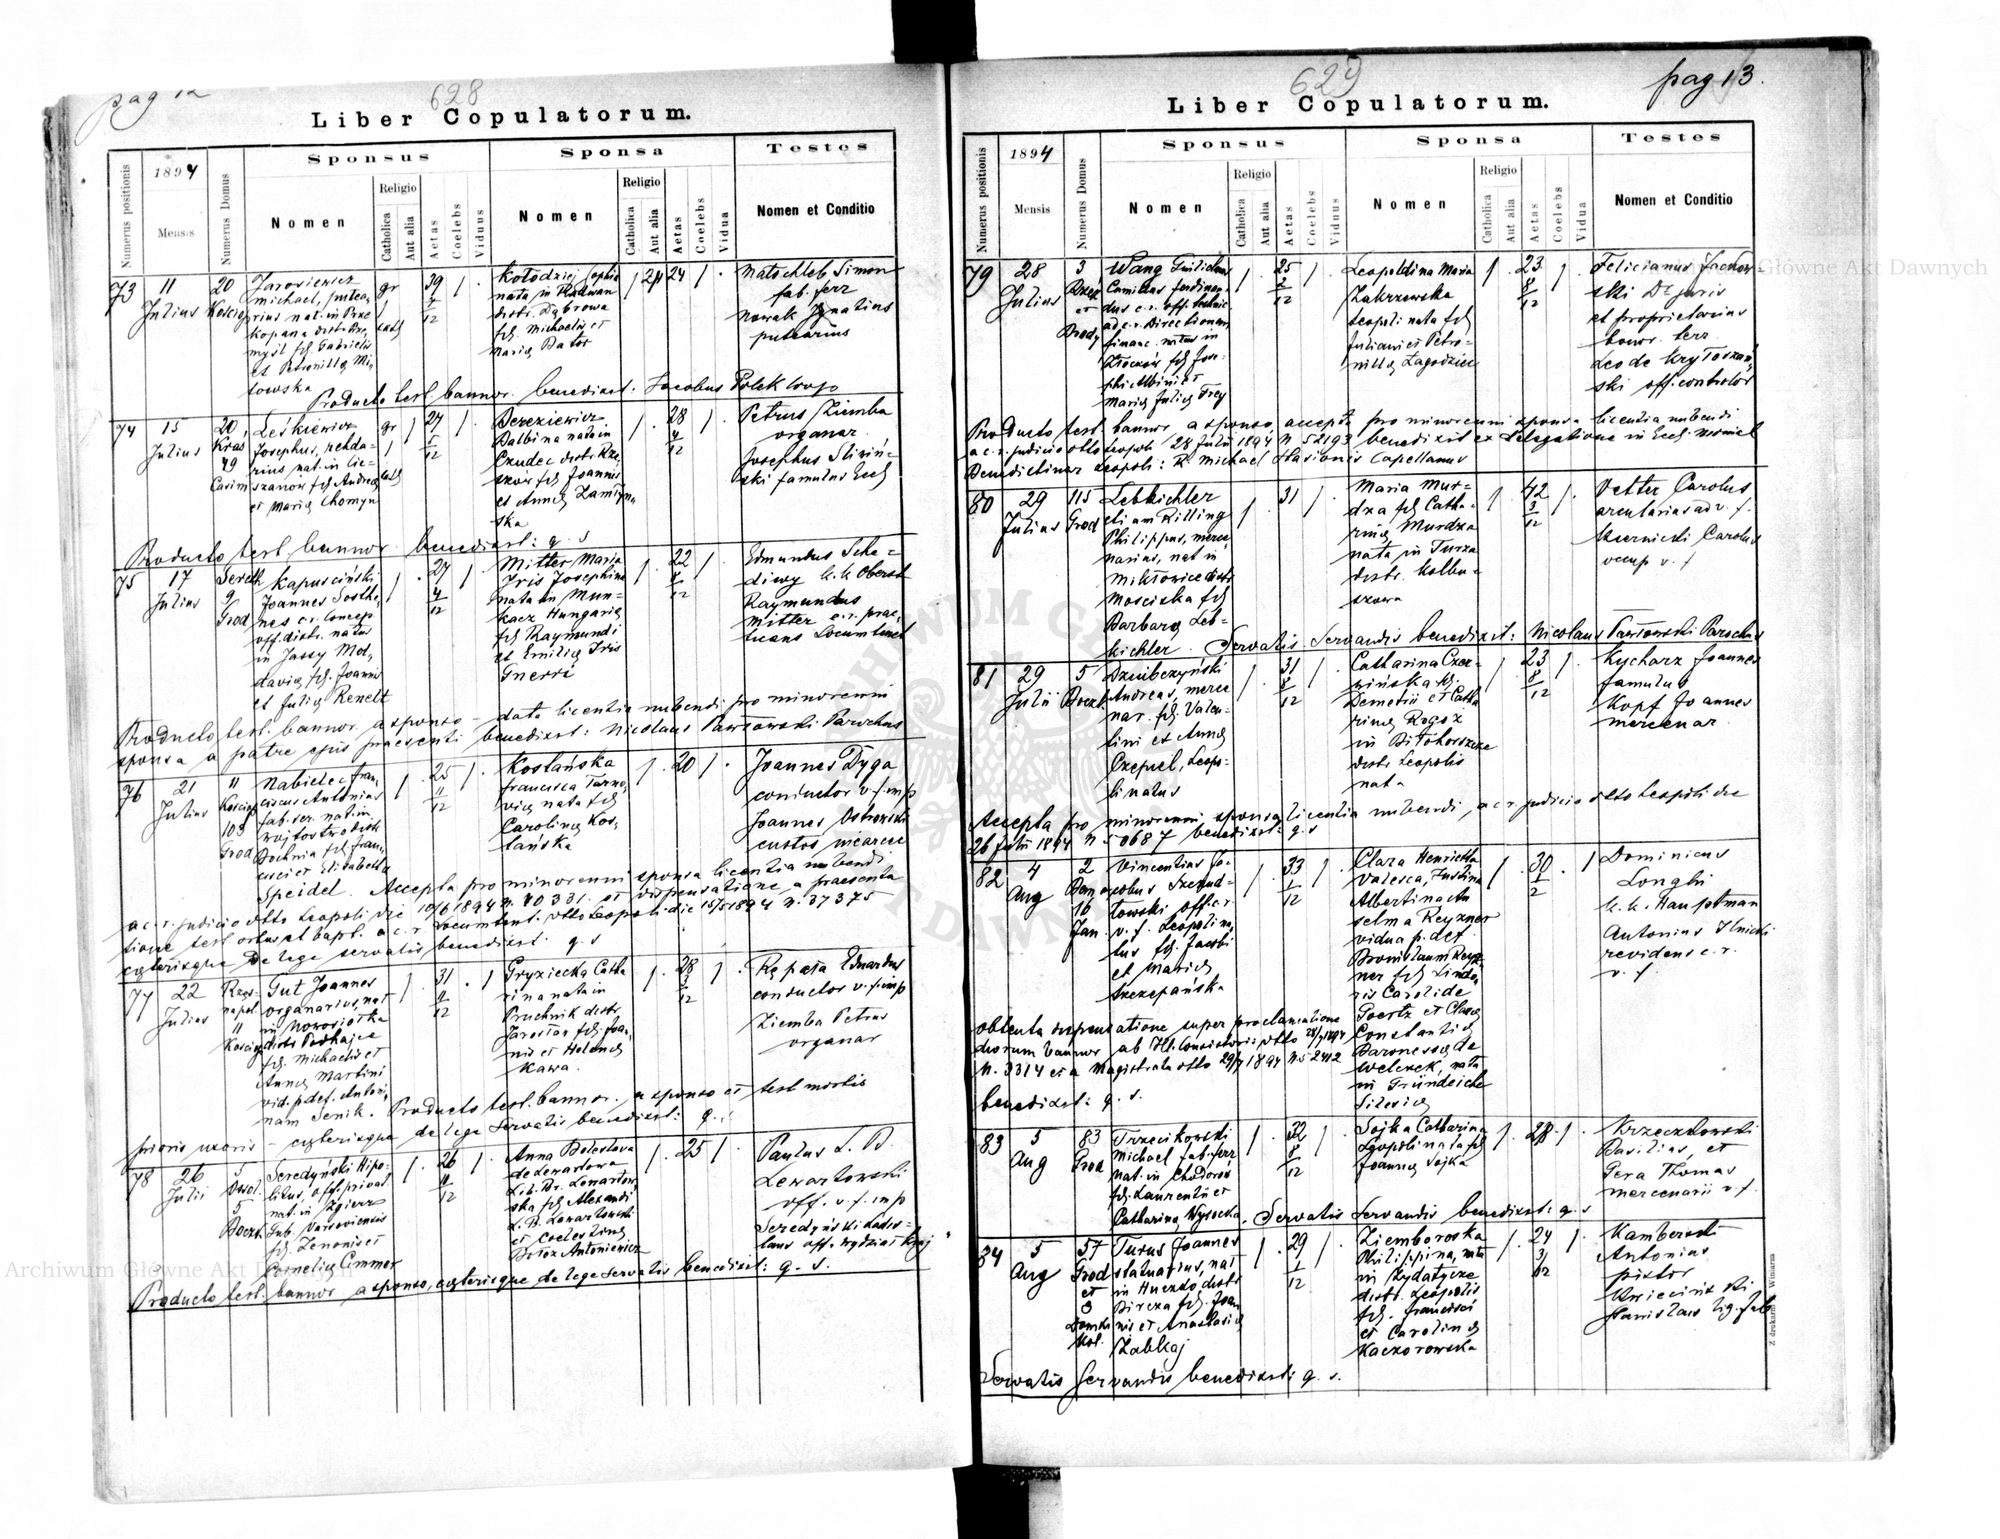 pag 12
628
Liber Copulatorum.
Numerus positionis
1894
Mensis
Numerus Domus
Sponsus
Nomen
Religio
Catholica
Aut alia
Aetas
Coelebs
Viduus
Sponsa
Nomen
Religio
Catholica
Aut alia
Aetas
Coelebs
Vidua
Testes
Nomen et Conditio
73
11
Julius
20
Jarosiewicz
Michael, putea-
rius nat. in Prze
kopana distr. Prz
mysl fil. Gabrielis
et Petronillae Mi
towska
gr
cath
39
12
Kołodziej Sophia
nata in Radwan
distr. Dąbrowa
fil. Michaelis et
Mariae Bator
24
Matschleb Simon
fab. ferr
Nowak Ignatius
putearius
Producto test. bannor. benedixit: Jacobus Polek coop
74
15
Julius
20
Kras
49
Casim
Leśkiewicz
Josephus, rheda-
rius nat. in Cie-
szanow fil. Andreae
et Mariae Chomyn
gr
cath
27
12
Bereziewicz
Balbina nata in
Czudec distr. Rze
szow fil. Joannis
et Annae Zamłyn
ska
28
12
Petrus Ziemba
organar.
Josephus Śliwiń-
ski famulus Eccl
Producto test. bannor. benedixit: q. s
75
17
Julius
9
Grod
Kapuściński
Joannes Sosthe
nes c.r. Concep
off. distr. natus
in Jassy Mol,
daviae, fil. Joannis
et Juliae Renelt
27
4
12
Mitter Maria
Iris Josephina
nata in Mun-
kacz Hungariae
fil. Raymundi
et Emiliae Iris
Gnerri
22
12
Edmundus Sche-
diwy k.k Oberst
Raymundus
Mitter c.r. prae-
Producto test. bannor. a sponso - data licentia nubendi pro minorenni
sponsa a patre ejus praesenti benedixit: Nicolaus Pawłowski Parochus
76
21
Julius
11
103
Grod
Nabielec Fran,
ciscus Antonius
fab. ser. nat. in
Wojtostwo distr
Bochnia fil. Fran
cisci et Elisabethae
Speidel.
25
11
12
Koslańska
Francisca Tarno
viae nata fil.
Carolinae Kos,
lańska
20
Joannes Dyga
conductor v. f. imp
Joannes Ostrowski
custos
Accepta pro minorenni sponsa licentia nubendi
a c. r. judicio dtto Leopoli die 10/6 1894 N. 40331. et dispensatione a praesenta
tione test. ortus et bapt. a c. r. Locumtent. dtto Leopoli die 15/5 1894 N. 37375
caeterisque de lege servatis benedixit: q. s
77
22
Julius
11
Gut Joannes
organarius, nat
in Nowosiółka
distr. Podhajce
fil. Michaelis et
Annae Martini
vid. p. def. Antoni,
nam Senik.
31
12
Gryziecka Catha
rina nata in
Pruchnik distr.
Jarosław fil. Joan,
nis et Helenae
Kawa.
28
12
Rępała Eduardus
conductor v. f. imp
Ziemba Petrus
organar
Producto test. bannor. a sponso et test mortis
prioris uxoris - caeterisque de lege servatis benedixit: q. s
78
26
Julii
5
5
Boczt.
Seredyński Hipo-
litus, off. privat
nat. in Zgierz
Gub. Varsoviensis
fil. Zenonis et
Corneliae Cimmer
26
11
12
Anna Boleslava
de Lewartowa
Lib. Br. Lewartow,
ska fil. Alexandri
L. B. Lewartowski
et Coelestinae
Bołoz Antoniewicz
25
Paulus L. B.
Lewartowski
off. v. f. imp
Seredyński Ladis-
laus off. Wydział Kraj
Producto test. bannor a sponso, caeterisque de lege servatis benedixit: q. s.
629
pag 13.
Liber Copulatorum.
Numerus positionis
1894
Mensis
Numerus Domus
Sponsus
Nomen
Religio
Catholica
Aut alia
Aetas
Coelebs
Viduus
Sponsa
Nomen
Religio
Catholica
Aut alia
Aetas
Coelebs
Vidua
Testes
Nomen et Conditio
79
28
Julius
3
et
Brody
Wang Guilielmus
Camillus Ferdinan-
dus c. r. off. technic
ad c. r. Directionem
financ. natus in
Złoczów fil. Jose-
phi Albini et
Mariae Juliae Frey
25
2
12
Leopoldina Maria
Zakrzewska
Leopoli nata fil
Juliani et Petro-
nillae Łagodzic
23
8
12
Felicianus Jackow-
ski Dr juris
et proprietarius
bonor. terr
Leo de Kryłoszań-
ski off. controlor
Producto test. bannor a sponso, accepta pro minorenni sponsa licentia nubendi
a c. r. judicio dtto Leopoli 28 Julii 1894 N 52193 benedixit ex delegatione in Eccl. Monial
Benedictinar Leopoli: R. Michael Stasionis Capellanus
80
29
Julius
115
Grod
Lebkichler
etiam Rilling
Philippus, merce
narius, nat in
Miktowice distr
Mosciska fil
Barbarae Leb-
kichler.
31
Maria Mur-
dza fil Catha-
rinae Murdza
nata in Turza
distr. Kolbu-
szowa
42
3
12
Vetter Carolus
arcularius ad v. f.
Czernicki Carolus
occup v. f
Servatis Servandis benedixit: Nicolaus Pawłowski Parochus
81
29
Julii
5
Boczt
Dziubczyński
Andreas, merce
nar. fil. Valen-
tini et Annae
Czepiel, Leopo-
li natus
31
8
12
Catharina Czer-
wińska fil.
Demetrii et Catha
rinae Rogoz
in Biłohorszcze
distr. Leopolis
nata
23
8
12
Kycharz Joannes
famulus
Kopf Joannes
mercenar.
Accepta pro minorenni sponsa licentia nubendi, a c. r. judicio dtto Leopoli die
26 Julii 1894 N 50687 benedixit: q. s
82
4
Aug
2
16
Jan.
Vincentius Ja-
cobus Szczud-
łowski off. c. r.
v. f. Leopoli na,
tus fil. Jacobi
et Mariae
Szczepańska
33
1
12
Clara Henrietta
Valesca, Justina
Albertina
Selma Reyzner
vidua p. def.
Bronislaum Reyz
ner fil. Linda,
ris Caroli de
Goertz et Clarae
Constantiae
Baronessae de
Welczek, nata
in Gründeiche
Silesiae
30
1
2
Dominicus
Longhi
k.k. Hauptman
Antonius Ilnicki
revidens c. r.
v. f.
Obtenta dispensatione super proclamatione
duorum bannor ab Ill. Consistorio dtto 28/7 1894
N. 3314 et a Magistratu dtto 29/7 1894 N. 52412
benedixit: q. s.
83
5
Aug
83
Grod
Trzecikowski
Michael fab. ferr
nat. in Chodorów
fil. Laurentii et
Catharina Wysocka.
32
8
12
Sojka Catharina
Leopoli nata fil
Joannae Sojka
28
Krzeczkowski
Basilius, et
Gera Thomas
mercenarii v. f.
Servatis Servandis benedixit: q. s
84
5
Aug
57
Grod
et
3
Turus Joannes
statuarius, nat
in Huczko, distr
Bircza fil. Joan
nis et Anastasiae
Zabkaj
29
1
12
Ziemboroska
Philippina, nata
in Rydatycze
distr. Leopolis
fil. Francisci
et Carolinae
Kaczorowska
24
3
12
Kamberodt
Antonius
pictor
Kwieciński
Stanislaus lig. fab
Servatis Servandis benedixit: q. s.
Archiwum Główne Akt Dawnych